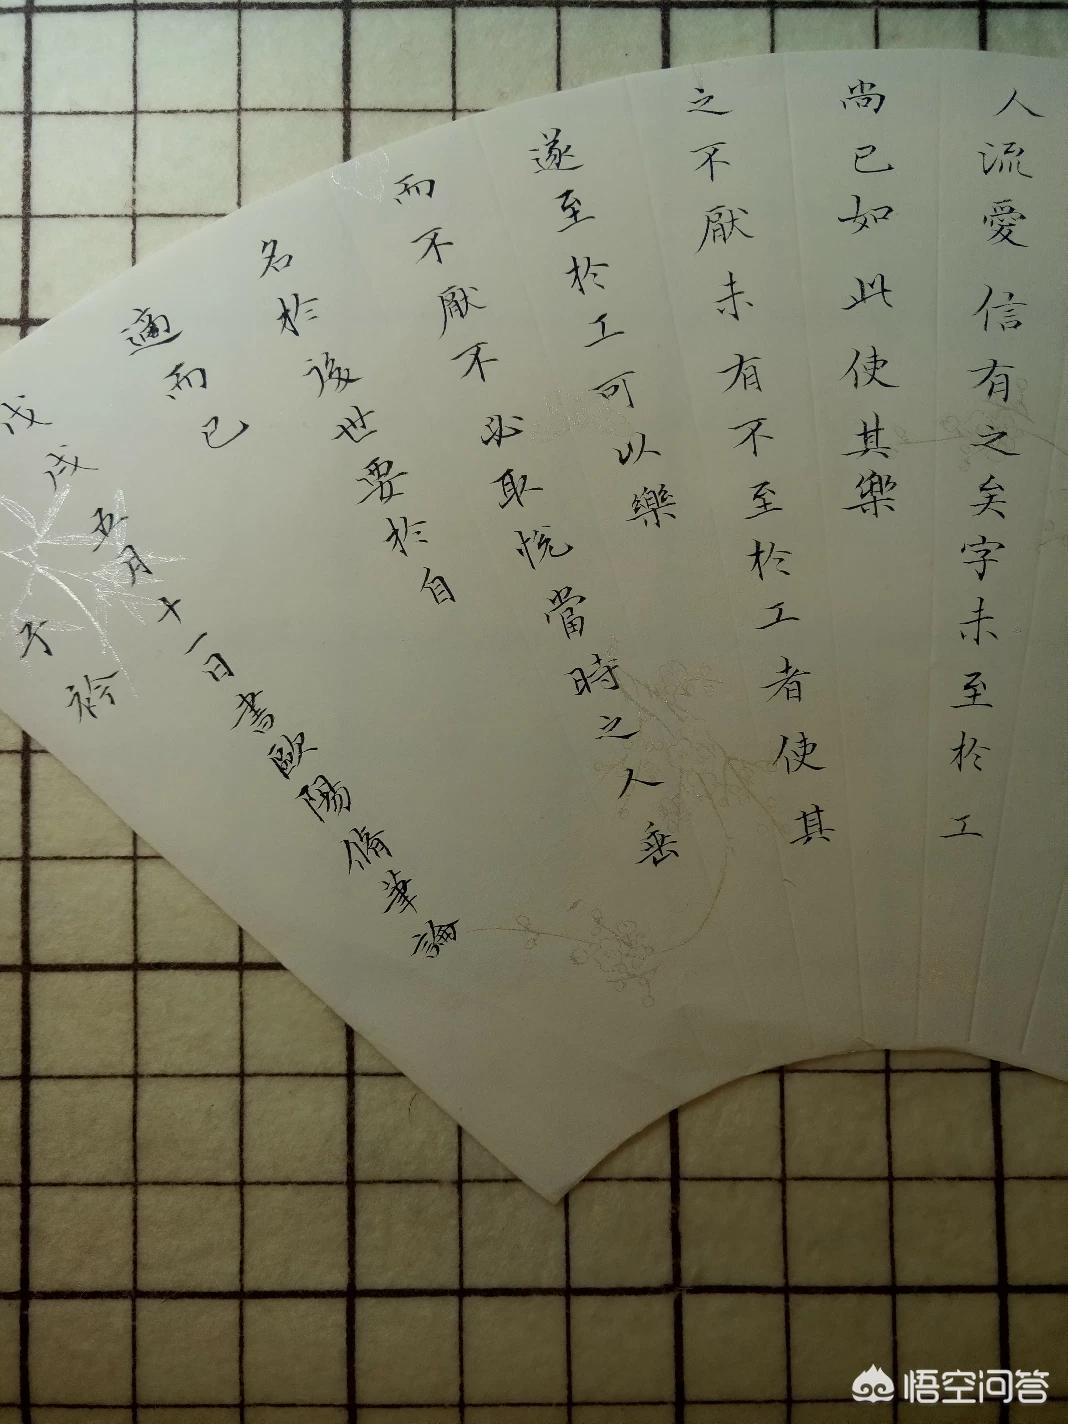 人流愛信有之矣字未至於工
尚已如此使其樂
之不厭未有不至於工者使其
遂至於工可以樂
而不厭不必取悅當時之人垂
名於後世要於自
適而已
戊戌五月十一日書歐陽脩筆論
子衿
悟空问答